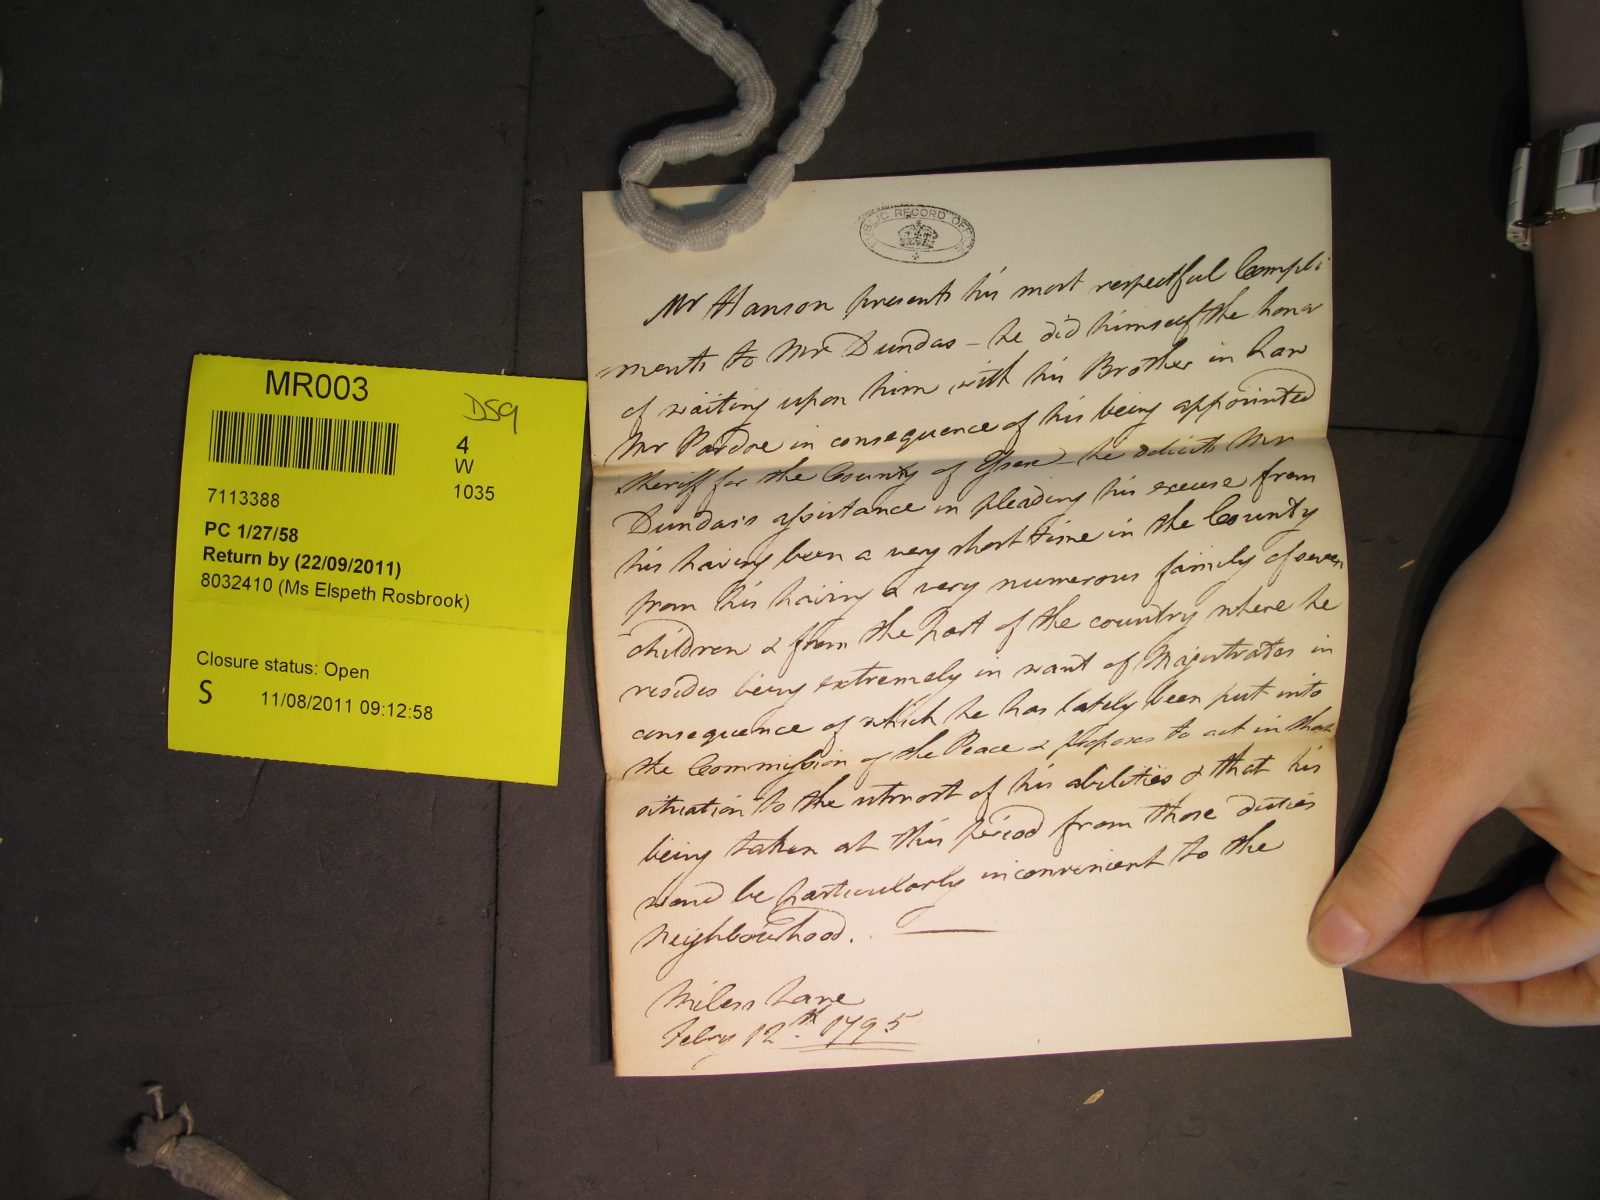 MR003
DS9
4
W
1035
7113388
PC 1/27/58
Return by (22/09/2011)
8032410 (Ms Elspeth Rosbrook)
Closure status: Open
S 11/08/2011 09:12:58
PUBLIC RECORD OFFICE
Mr Hanson presents his most respectful Compli
ments to Mr Dundas - he did himself the honor
of waiting upon him with his Brother in Law
Mr Pardoe in consequence of his being appointed
Sheriff for the County of Essex - he solicits Mr
Dundas's assistance in pleading his excuse from
his having been a very short time in the County
from his having a very numerous family of seven
children & from the part of the country where he
resides being extremely in want of Majistrates in
consequence of which he has lately been put into
the Commission of the Peace & proposes to act in that
situation to the utmost of his abilities & that his
being taken at this period from those duties
woud be particularly inconvenient to the
Neighbourhood.
Miless Lane
Febry 12th 1795